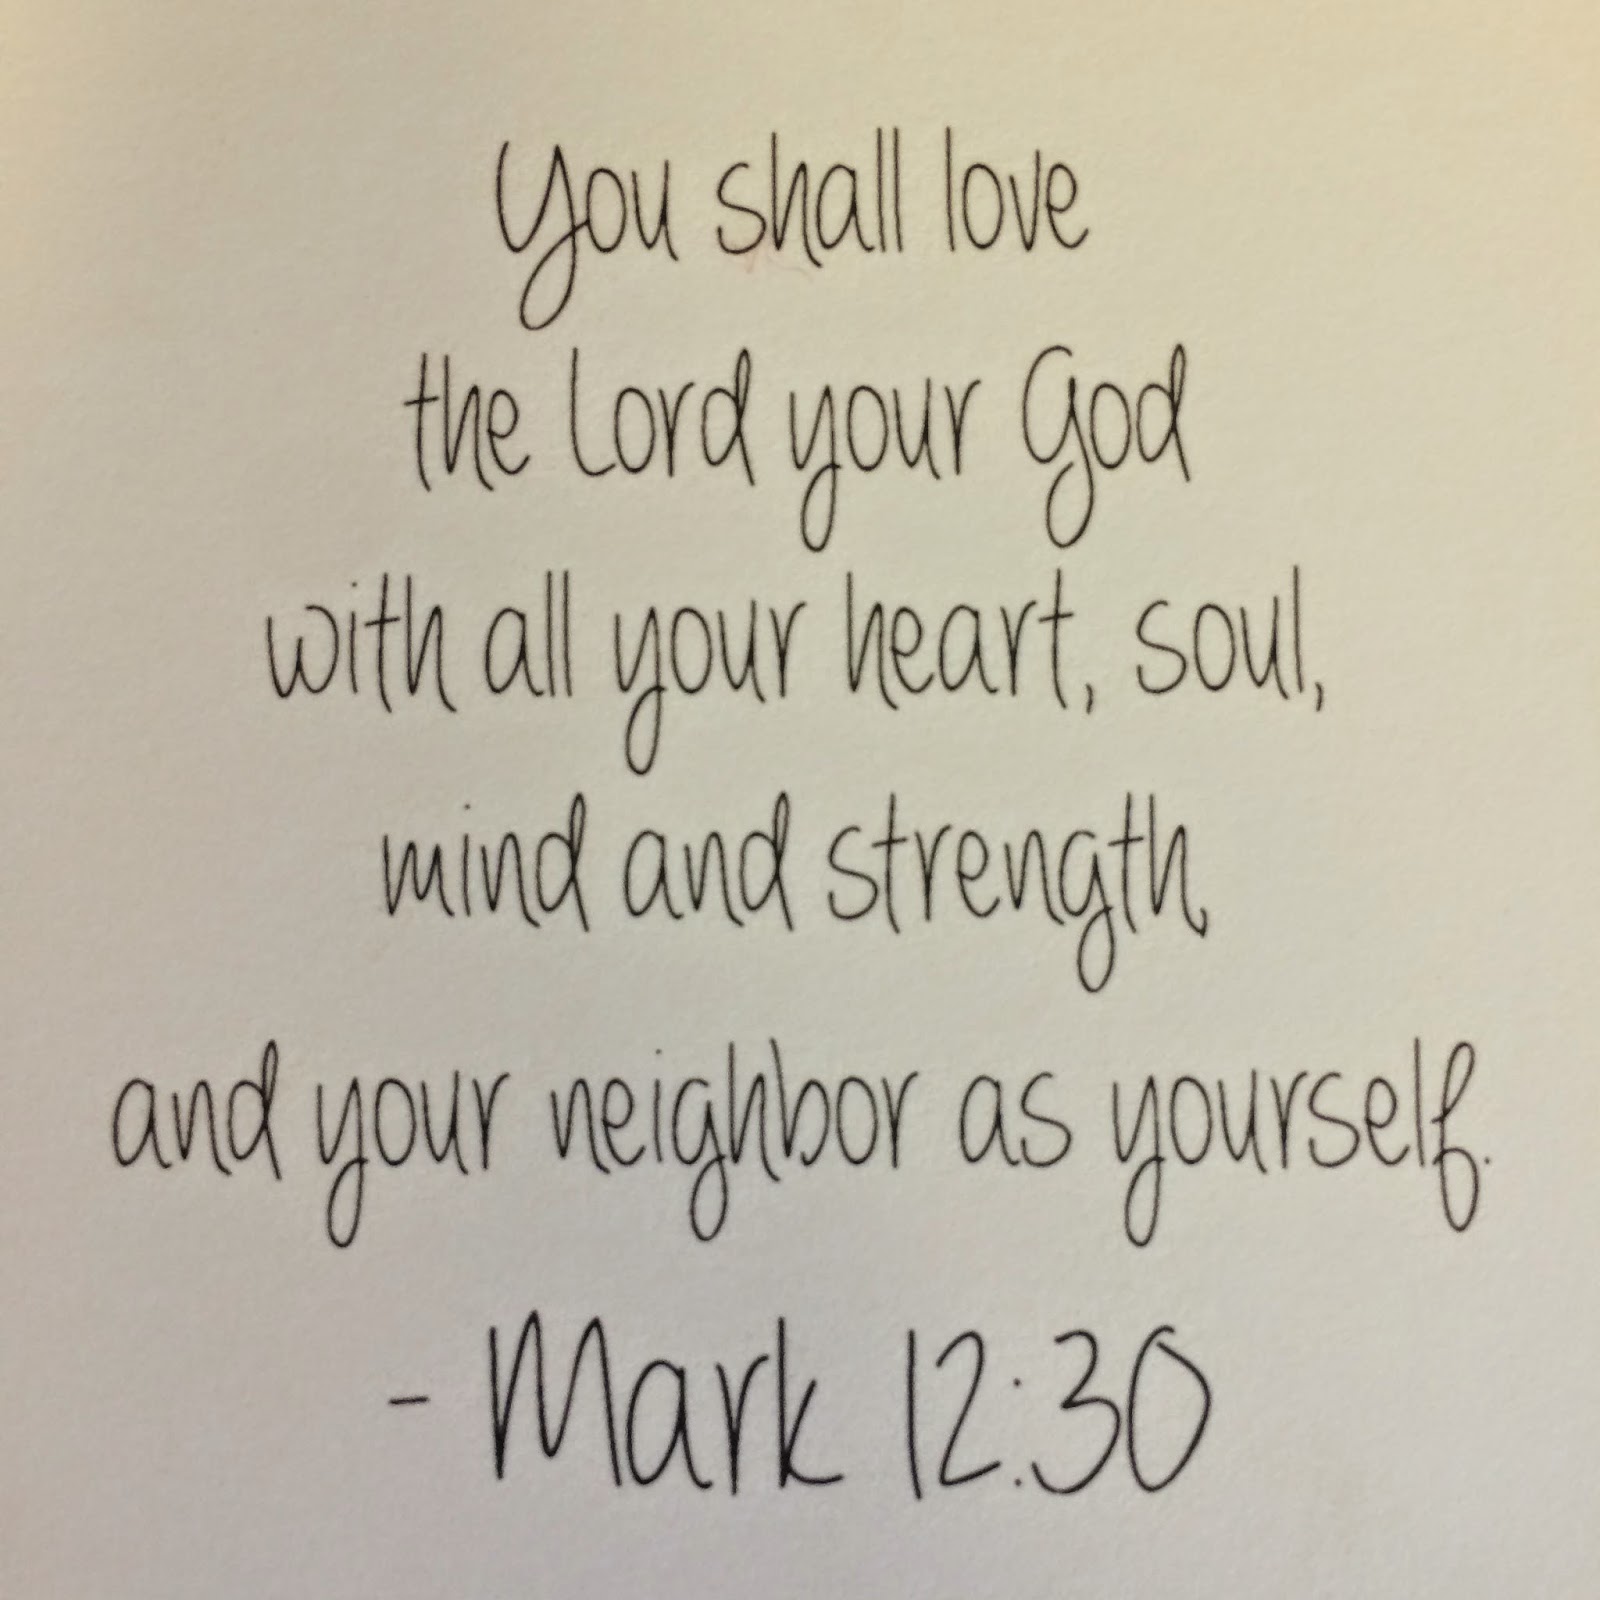 You shall love
the Lord your God
with all your heart, soul,
mind and strength,
and your neighbor as yourself.
- Mark 12:30